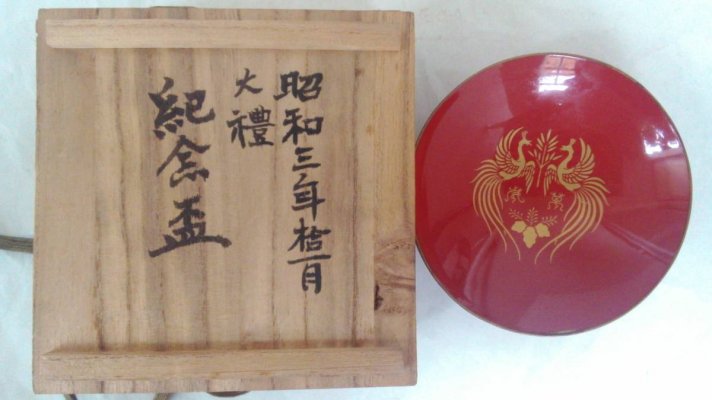 昭和三年拾一月
大禮
紀念盃
萬歳